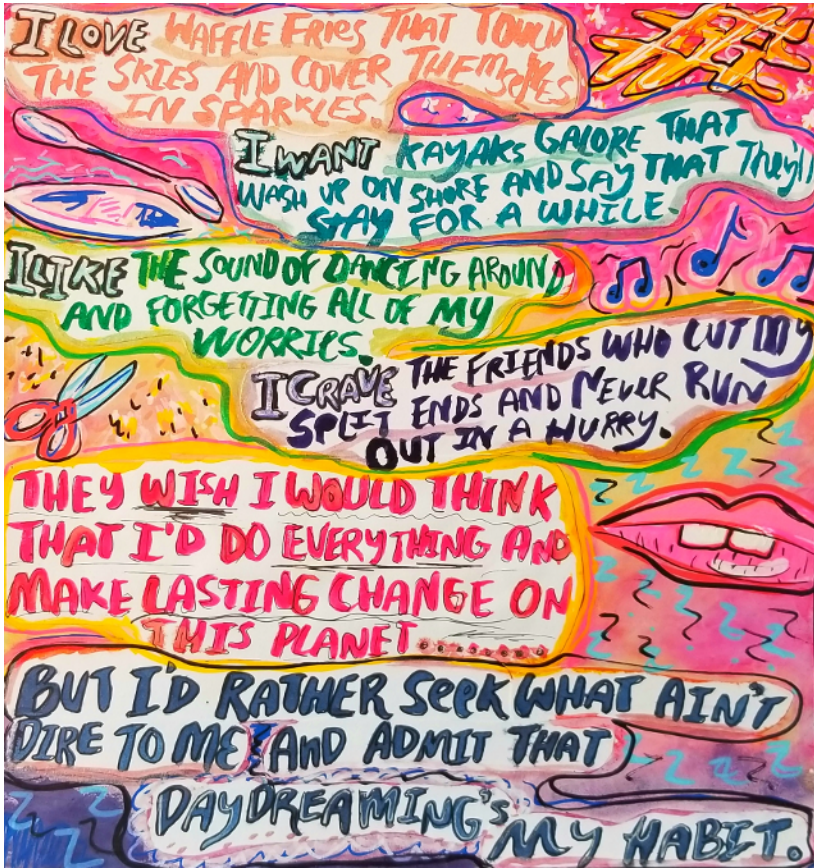 I LOVE WAFFLE FRIES THAT TOUCH
THE SKIES AND COVER THEMSELVES
IN SPARKLES.
I WANT KAYAKS GALORE THAT
WASH UP ON SHORE AND SAY THAT THEY'll
STAY FOR A WHILE.
I LIKE THE SOUND OF DANCING AROUND
AND FORGETTING ALL OF MY
WORRIES.
I CRAVE THE FRIENDS WHO CUT MY
SPLIT ENDS AND NEVER RUN
OUT IN A HURRY.
THEY WISH I WOULD THINK
THAT I'D DO EVERYTHING AND
MAKE LASTING CHANGE ON
THIS PLANET..........
BUT I'D RATHER SEEK WHAT AIN'T
DIRE TO ME AND ADMIT THAT
DAYDREAMING'S MY HABIT.